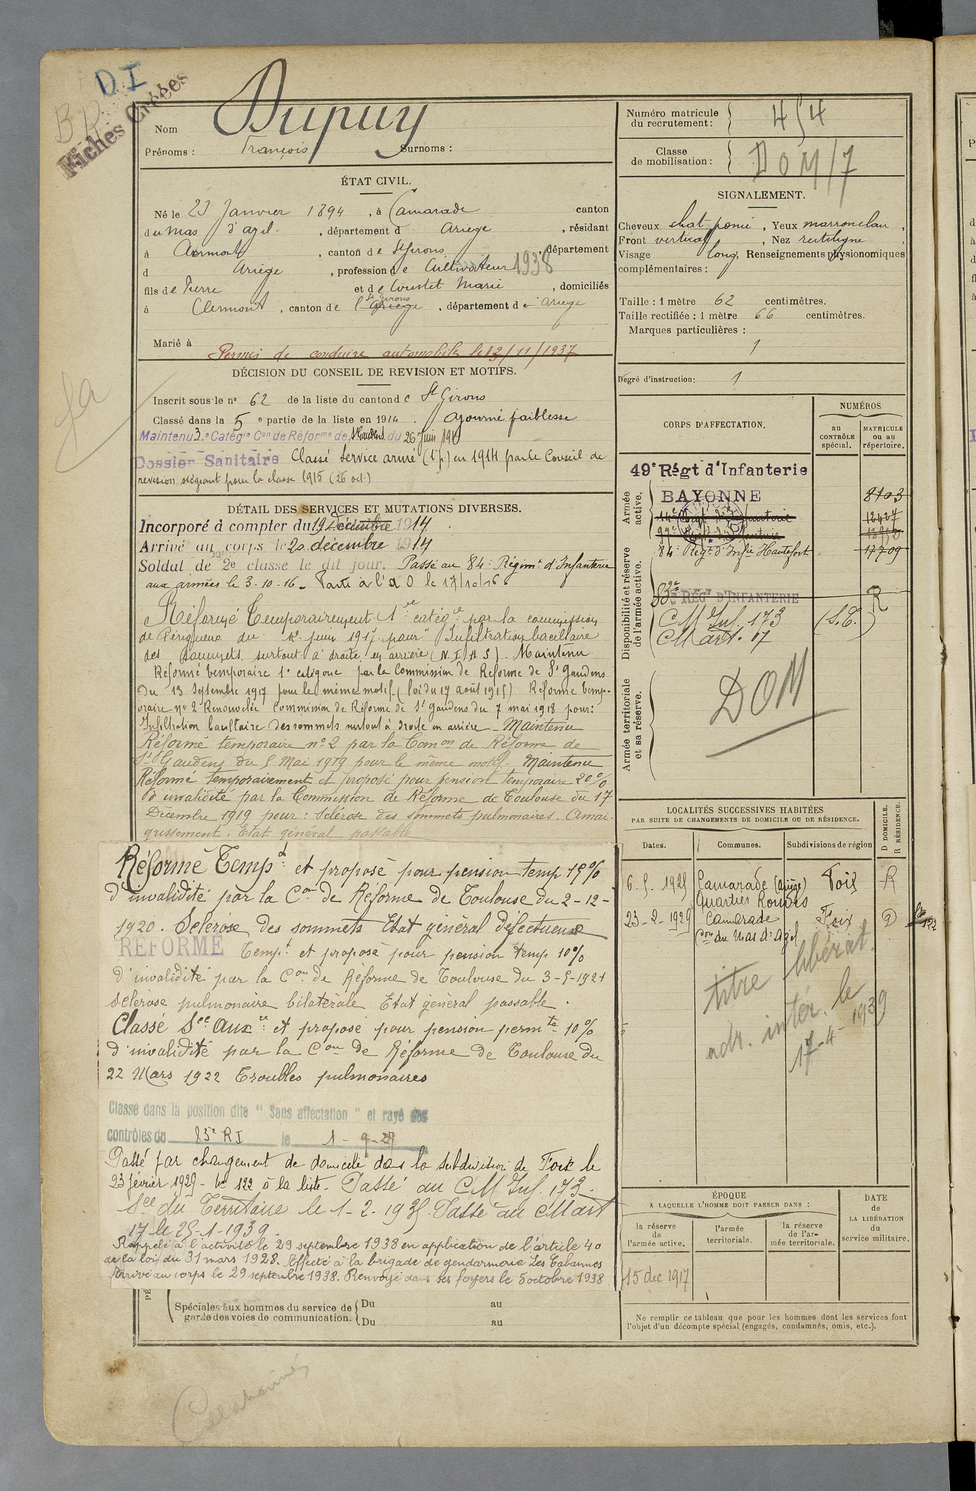 D.I
Fiches Créées
Nom Dupuy
Prénoms : François Surnoms :
ÉTAT CIVIL.
Né le 23 Janvier 1894, à Camarade canton
du mas d'azil, département d Ariège, résidant
à Clermont, canton de St Girons, département
d Ariège, profession de Cultivateur 1938
fils de Pierre et de Courtet Marie, domiciliés
à Clermont, canton de St Girons Ariège, département de Ariège
Marié à
Permis de conduire automobile le 13/11/1937
DÉCISION DU CONSEIL DE REVISION ET MOTIFS.
Inscrit sous le n° 62 de la liste du canton de St Girons
Classé dans la 5e partie de la liste en 1914. Ajourné faiblesse
Maintenu 3.e Catégie Con de Réforme de St Gaudens du 26 Juin 19
Dossier Sanitaire Classé Service armé (1e p) en 1914 par le Conseil de
revision siégeant pour la classe 1915 (26 oct.)
DÉTAIL DES SERVICES ET MUTATIONS DIVERSES.
Incorporé à compter du 19 décembre 1914.
Arrivé au corps le 20 décembre 1914
Soldat de 2e classe le dit jour. Passé au 84e Régimt d'Infanterie
aux armées le 3-10-16 - Parti à l'A O le 17/10/16
Réformé Temporairement 1re catégie par la commission
de Périgueux du 12 Juin 1917 pour "Infiltration bacillaire
des sommets surtout à droite en arrière (N.I.A S). Maintenu
Réformé temporaire 1e catégorie par la Commission de Réforme de St Gaudens
du 13 Septembre 1917 pour le même motif (loi du 17 août 1915) Réformé Temp-
oraire n° 2 Renouvelée Commission de Réforme de St Gaudens du 7 mai 1918 pour:
Infiltration bacillaire des sommets surtout à droite en arrière - Maintenu
Réformé temporaire n° 2 par la Comon de Réforme de
St Gaudens du 5 Mai 1919 pour le même motif. Maintenu
Réformé temporairement et proposé pour pension temporaire 20%
d'invalidité par la Commission de Réforme de Toulouse du 17
Décembre 1919 pour: Sclérose des sommets pulmonaires. Amai-
grissement. Etat général passable
Réformé Tempt et proposé pour pension temp 19%
d'invalidité par la Con de Réforme de Toulouse du 2-12-
1920. Sclérose des sommets Etat général défectueux
RÉFORMÉ Tempt et proposé pour pension temp 10%
d'invalidité par la Con de Réforme de Toulouse du 3-5-1921
Sclérose pulmonaire bilatérale Etat général passable.
Classé Sce Auxre et proposé pour pension permte 10%
d'invalidité par la Con de Réforme de Toulouse du
22 Mars 1922 Troubles pulmonaires
Classé dans la position dite "Sans affectation" et rayé des
contrôles du 83e RI le 1-9-27
Passé par changement de domicile dans la subdivision de Foix le
23 février 1929 - N° 122 à la liste. Passé au C M Inf. 173.
Sce du Territoire le 1-2-1935 Passé au CMart
17 le 25-1-1939
Rappelé à l'activité le 29 septembre 1938 en application de l'article 40
de la loi du 31 mars 1928. Affecté à la brigade de gendarmerie Les Cabannes
Arrivé au corps le 29 septembre 1938. Renvoyé dans ses foyers le 5 octobre 1938
Spéciales aux hommes du service de garde des voies de communication. Du au
Du au
Numéro matricule du recrutement : 454
Classe de mobilisation : DOM/7
SIGNALEMENT.
Cheveux chat foncé, Yeux marron clair,
Front vertical, Nez rectiligne,
Visage long, Renseignements physionomiques
complémentaires :
Taille : 1 mètre 62 centimètres.
Taille rectifiée : 1 mètre 66 centimètres.
Marques particulières :
Degré d'instruction : 1
CORPS D'AFFECTATION.
NUMÉROS
au CONTRÔLE spécial.
MATRICULE ou au répertoire.
Armée active.
49e Régt d'Infanterie
BAYONNE 8103
14e Régt d'Infanterie 12427
84e Régt d'Infie Hautefort 17709
Disponibilité et réserve de l'armée active.
83e RÉGt D'INFANTERIE R
C M Inf. 173 (S.T.)
CMart. 17
Armée territoriale et sa réserve.
DOM
LOCALITÉS SUCCESSIVES HABITÉES
PAR SUITE DE CHANGEMENTS DE DOMICILE OU DE RÉSIDENCE.
Dates. Communes. Subdivisions de région D DOMICILE. R RÉSIDENCE.
6.5.1925 Camarade (Ariège) Foix R
Quartier Rouges
23-2-1929 Camarade Foix D
Con du Mas d'Azil
titre libérat.
adr. intér. le
17-4-1939
ÉPOQUE
A LAQUELLE L'HOMME DOIT PASSER DANS :
la réserve de l'armée active. l'armée territoriale. la réserve de l'armée territoriale.
DATE DE LA LIBÉRATION du service militaire.
15 dec 1917
Ne remplir ce tableau que pour les hommes dont les services font
l'objet d'un décompte spécial (engagés, condamnés, omis, etc.).